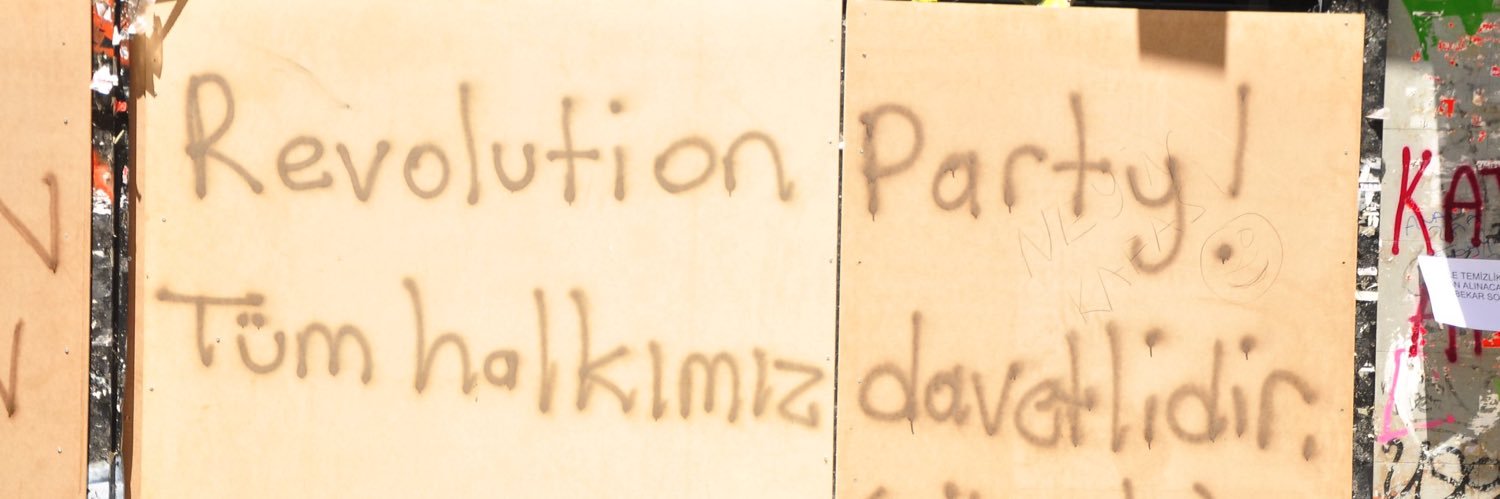 Revolution Party!
Tüm halkımız davetlidir.
KA
E TEMİZLİK
N ALINACA
BEKAR SO